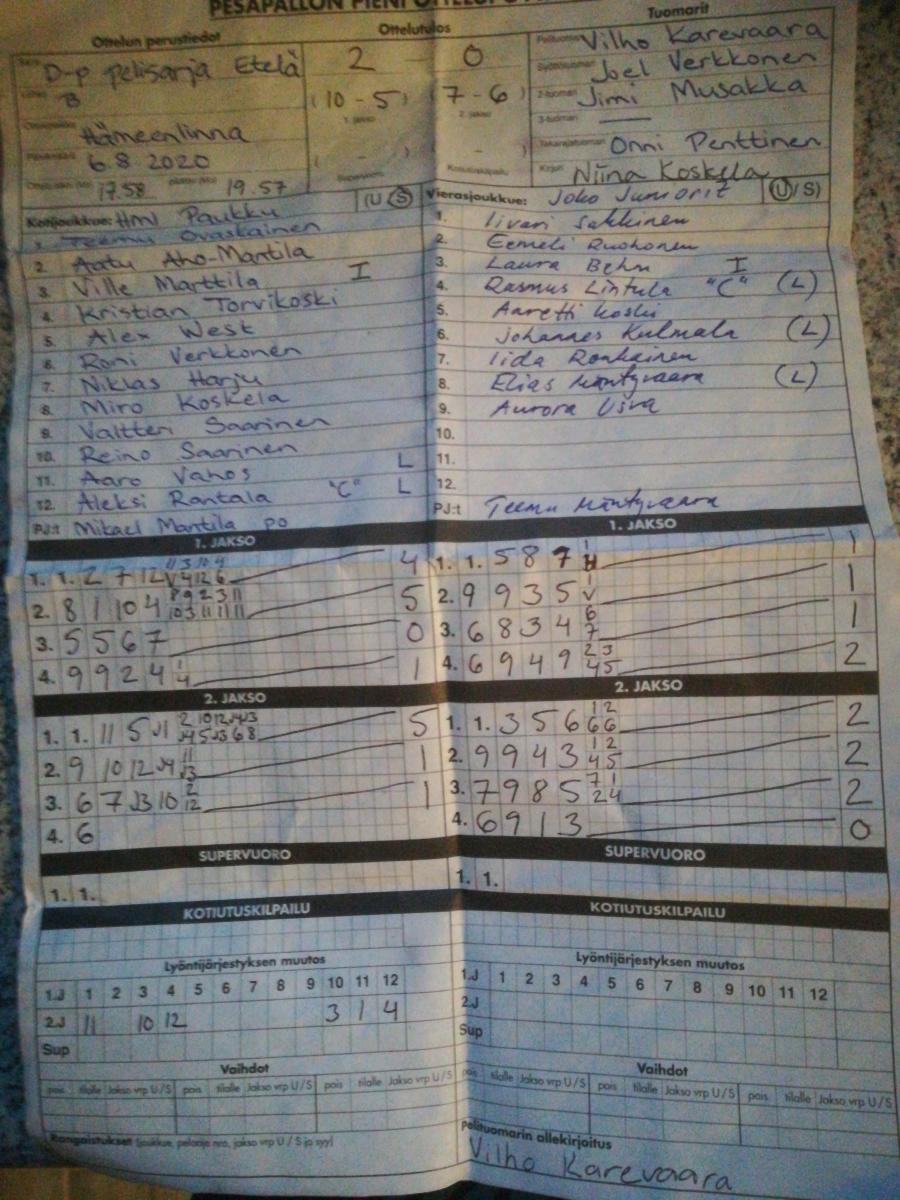 PESÄPALLON PIENI
Ottelun perustiedot
Ottelutulos
Tuomarit
D-p pelisarja Etelä
2 - 0
Vilho Karevaara
B
Joel Verkkonen
(10 - 5) 1. jakso
(7 - 6) 2. jakso
2-tuomari Jimi Musakka
3-tuomari —
Hämeenlinna
Takarajatuomari Onni Penttinen
6.8 2020
( - ) Supervuoro
- Kotiutuskilpailu
Kirjuri Niina Koskela
17.58 19.57
Kotijoukkue: Hml Paukku (U/S)
Vierasjoukkue: Joko Juniorit (U/S)
1. Teemu Ovaskainen
2. Aatu Aho-Mantila
3. Ville Marttila I
4. Kristian Torvikoski
5. Alex West
6. Roni Verkkonen
7. Niklas Harju
8. Miro Koskela
9. Valtteri Saarinen
10. Reino Saarinen
11. Aaro Vahos L
12. Aleksi Rantala "C" L
PJ:t Mikael Mantila po
1. Iivari Sakkinen
2. Eemeli Ruohonen
3. Laura Behm I
4. Rasmus Lintula "C" (L)
5. Aaretti Koski
6. Johannes Kulmala (L)
7. Iida Ronkainen
8. Elias Mäntyvaara (L)
9. Aurora
10.
11.
12.
PJ:t Teemu Mäntyvaara
1. JAKSO
1. 1. 2 7 12 4
2. 8 1 10 4 5
3. 5 5 6 7 0
4. 9 9 2 4 1 4 1
1. JAKSO
1. 1. 5 8 7 1
2. 9 9 3 5 1 V 1
3. 6 8 3 4 6 7 1
4. 6 9 4 9 2 3 4 5 2
2. JAKSO
1. 1. 11 5 J1 5
2. 9 10 12 J4 11 J3 1
3. 6 7 J3 10 2 12 1
4. 6
2. JAKSO
1. 1. 3 5 6 1 2 6 6 2
2. 9 9 4 3 1 2 4 5 2
3. 7 9 8 5 7 1 2 4 2
4. 6 9 1 3 0
SUPERVUORO
1. 1.
SUPERVUORO
1. 1.
KOTIUTUSKILPAILU
KOTIUTUSKILPAILU
Lyöntijärjestyksen muutos
1.J 1 2 3 4 5 6 7 8 9 10 11 12
2.J 11 10 12 3 1 4
Sup
Lyöntijärjestyksen muutos
1.J 1 2 3 4 5 6 7 8 9 10 11 12
2.J
Sup
Vaihdot
pois tilalle Jakso vrp U/S pois tilalle Jakso vrp U/S pois tilalle Jakso vrp U/S
Vaihdot
pois tilalle Jakso vrp U/S pois tilalle Jakso vrp U/S pois tilalle Jakso vrp U/S
Rangaistukset (joukkue, pelaaja nro, jakso vrp U / S ja syy)
Pelituomarin allekirjoitus
Vilho Karevaara